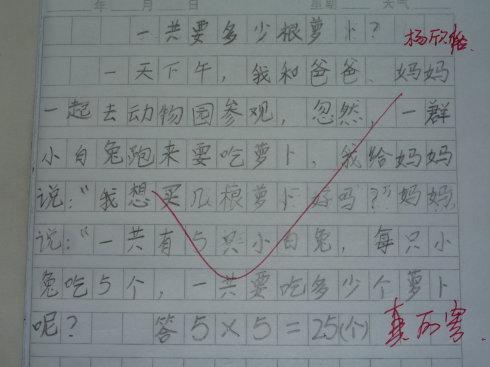 年 月 日 星期 天气
一共要多少根萝卜?
杨欣怡
一天下午,我和爸爸、妈妈
一起去动物园参观,忽然,一群
小白兔跑来要吃萝卜,我给妈妈
说:“我想买几根萝卜好吗?”妈妈
说:“一共有5只小白兔,每只小
兔吃5个,一共要吃多少个萝卜
呢? 答5×5=25(个)
真厉害